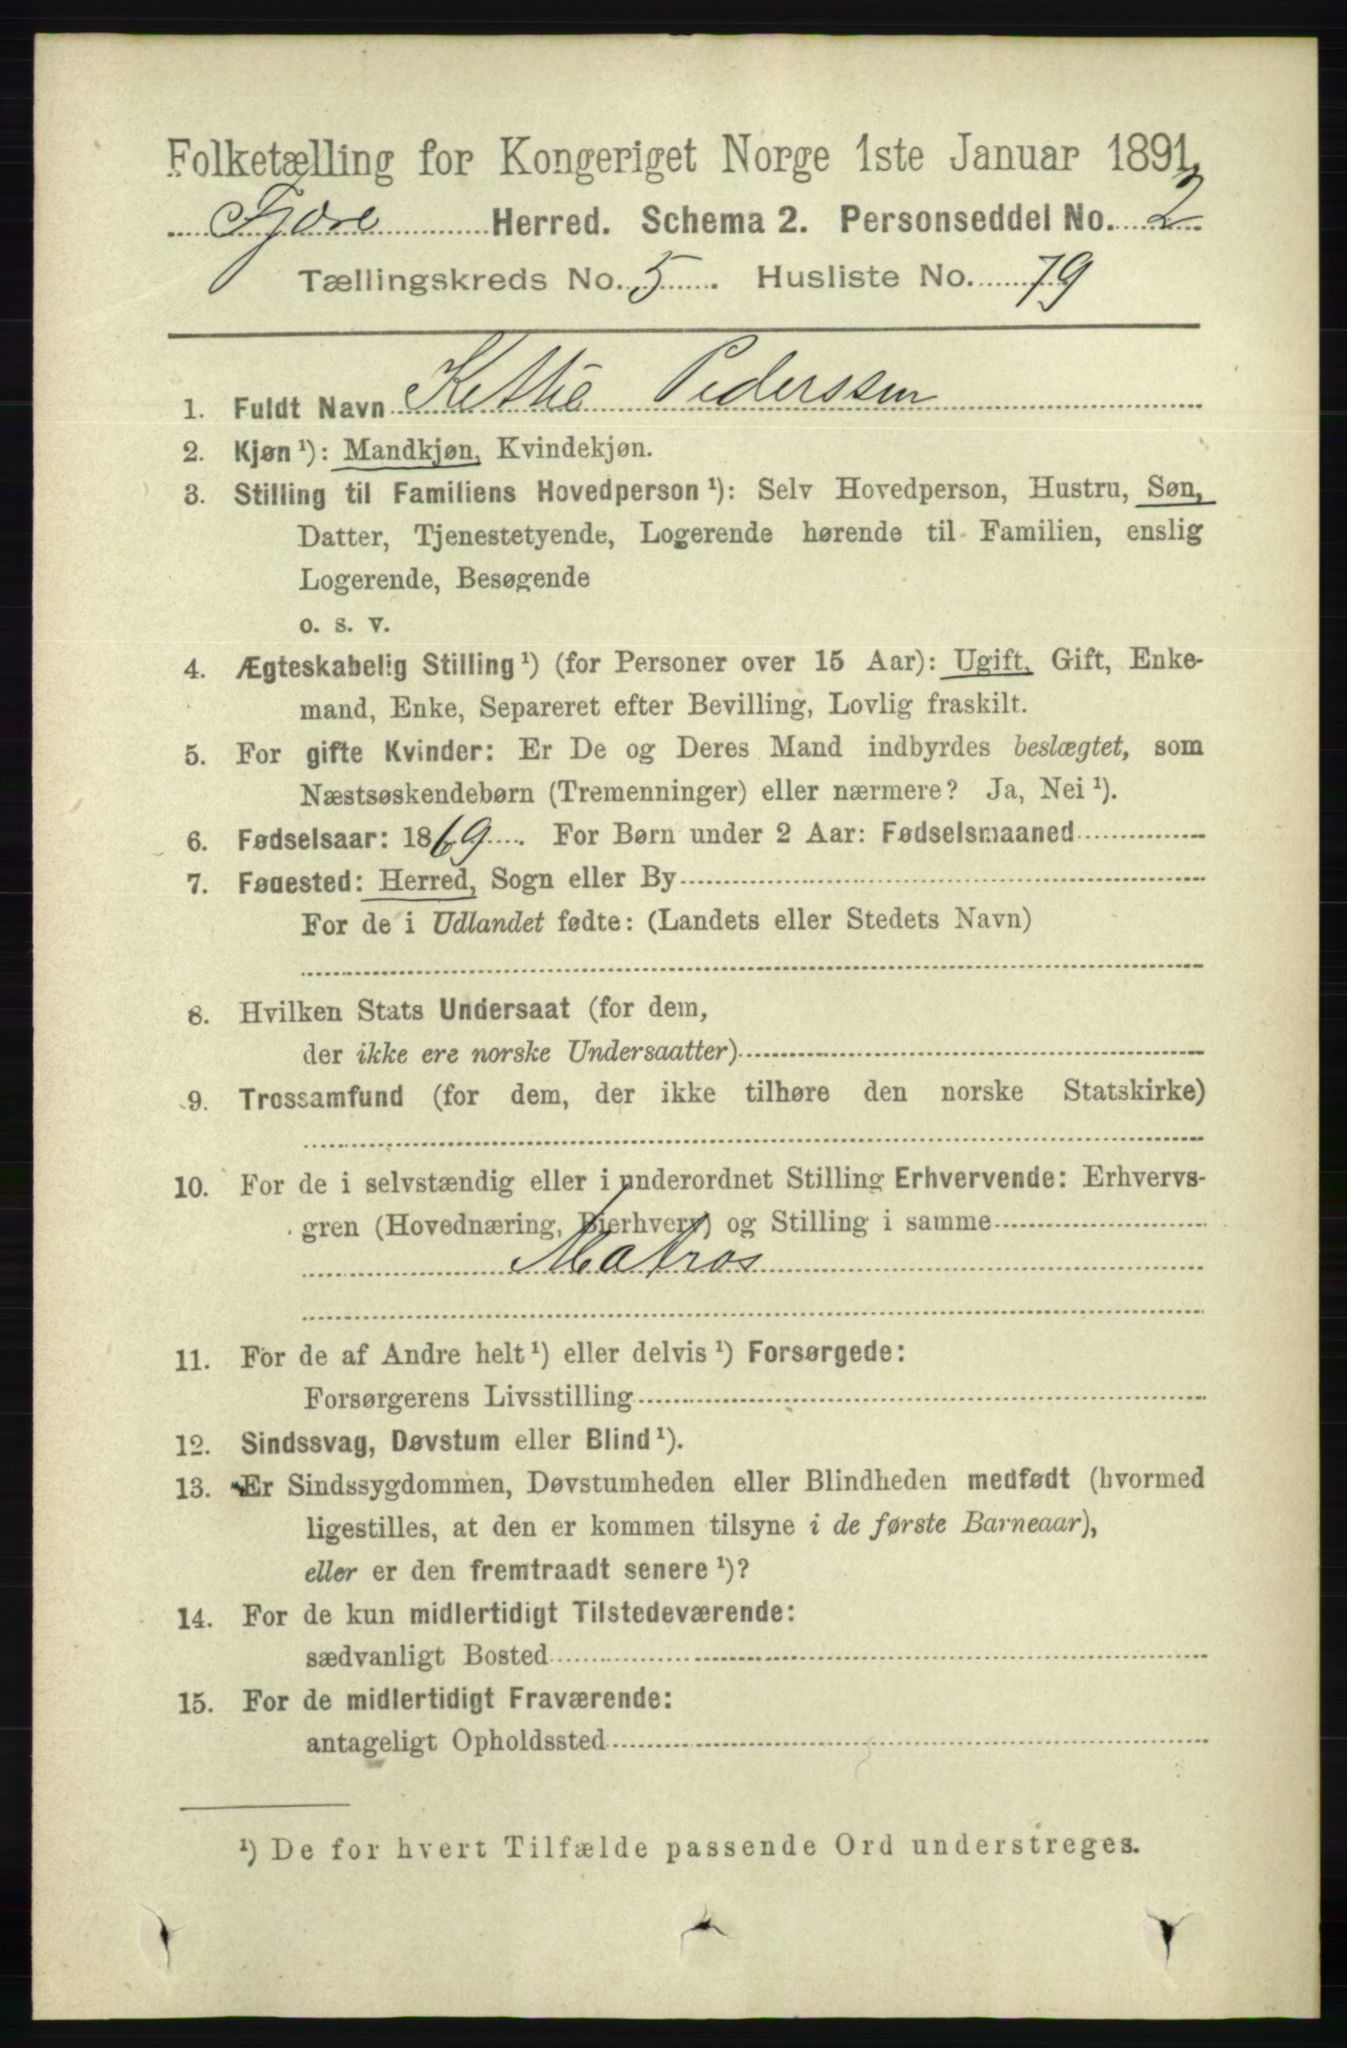 Folketælling for Kongeriget Norge 1ste Januar 1891.
Fjære Herred. Schema 2. Personseddel No. 2
Tællingskreds No. 5. Husliste No. 79
1. Fuldt Navn Pederssen
2. Kjøn ¹): Mandkjøn, Kvindekjøn.
3. Stilling til Familiens Hovedperson ¹): Selv Hovedperson, Hustru, Søn,
Datter, Tjenestetyende, Logerende hørende til Familien, enslig
Logerende, Besøgende
o. s. v.
4. Ægteskabelig Stilling ¹) (for Personer over 15 Aar): Ugift, Gift, Enke-
mand, Enke, Separeret efter Bevilling, Lovlig fraskilt.
5. For gifte Kvinder: Er De og Deres Mand indbyrdes beslægtet, som
Næstsøskendebørn (Tremenninger) eller nærmere? Ja, Nei ¹).
6. Fødselsaar: 1869. For Børn under 2 Aar: Fødselsmaaned
7. Fødested: Herred, Sogn eller By
For de i Udlandet fødte: (Landets eller Stedets Navn)
8. Hvilken Stats Undersaat (for dem,
der ikke ere norske Undersaatter)
9. Trossamfund (for dem, der ikke tilhøre den norske Statskirke)
10. For de i selvstændig eller i underordnet Stilling Erhvervende: Erhvervs-
gren (Hovednæring, Bierhverv) og Stilling i samme
Matros
11. For de af Andre helt ¹) eller delvis ¹) Forsørgede:
Forsørgerens Livsstilling
12. Sindssvag, Døvstum eller Blind ¹).
13. Er Sindssygdommen, Døvstumheden eller Blindheden medfødt (hvormed
ligestilles, at den er kommen tilsyne i de første Barneaar),
eller er den fremtraadt senere ¹)?
14. For de kun midlertidigt Tilstedeværende:
sædvanligt Bosted
15. For de midlertidigt Fraværende:
antageligt Opholdssted
¹) De for hvert Tilfælde passende Ord understreges.